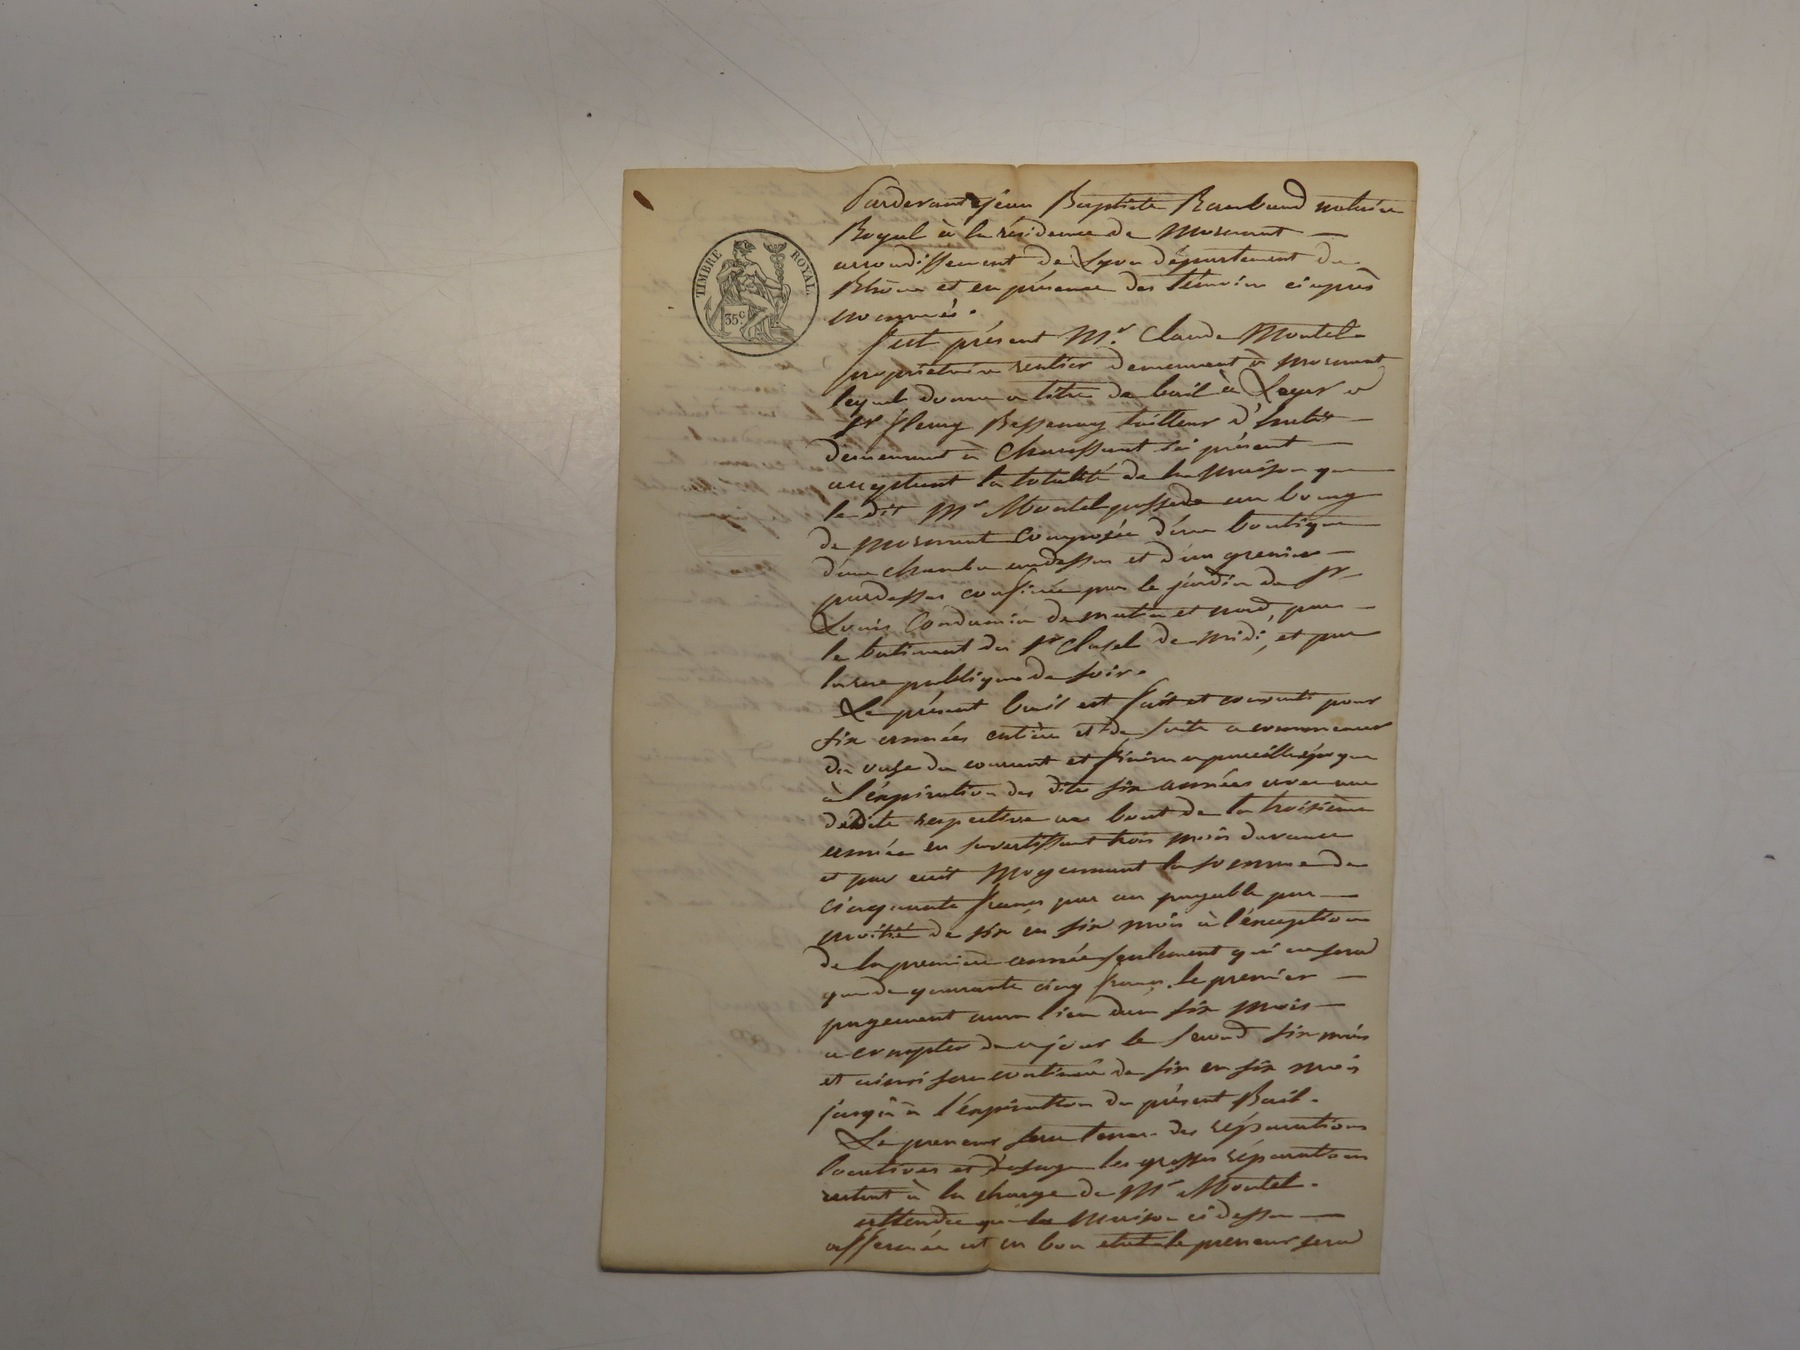 TIMBRE ROYAL.
35 c.
Pardevant jéan Baptiste Rambaud notaire
Royal à la résidence de mornant —
arrondissement de Lyon département du
Rhône et en présence des témoins ciaprès
nommés.
fut présent Mr. Claude Montel
propriétaire rentier demeurant à mornant
lequel donne a titre de bail à Loyer a
Sr fleury Bessenay tailleur d'habit —
demeurant à Chaussant ici présent —
acceptant la totalité de la maison que
le dit Mr Montel possede au bourg
de mornant Composée d'une boutique
d'une chambre audessus et d'un grenier —
pardessus confinée par le jardin de Sr
Louis Condamin de matin et nord, par —
le batiment du Sr Clazel de midi, et par
la rue publique de soir.
Le présent bail est fait et consenti pour
six années entière et de suite a commencer
du onze du courant et finira a pareille époque
à l'éxpiration des dites six années avec une
dédite respective au bout de la troisième
année en savertissant trois mois davance
et par ecrit moyennant la somme de
cinquante francs par an payable par —
moitié de six en six mois à l'éxception
de la premiere année seulement qui ne sera
que de quarante cinq francs, le premier —
payement aura lieu dans six mois —
a compter de ce jour le second six mois
et ainsi sera continué de six en six mois
jusqu'à l'éxpiration du présent Bail.
Le preneur sera tenu des réparations
locatives et d'usage les grosses réparations
restent à la charge de Mr Montel.
attendu que la maison ci dessus —
affermée est en bon etat le preneur sera